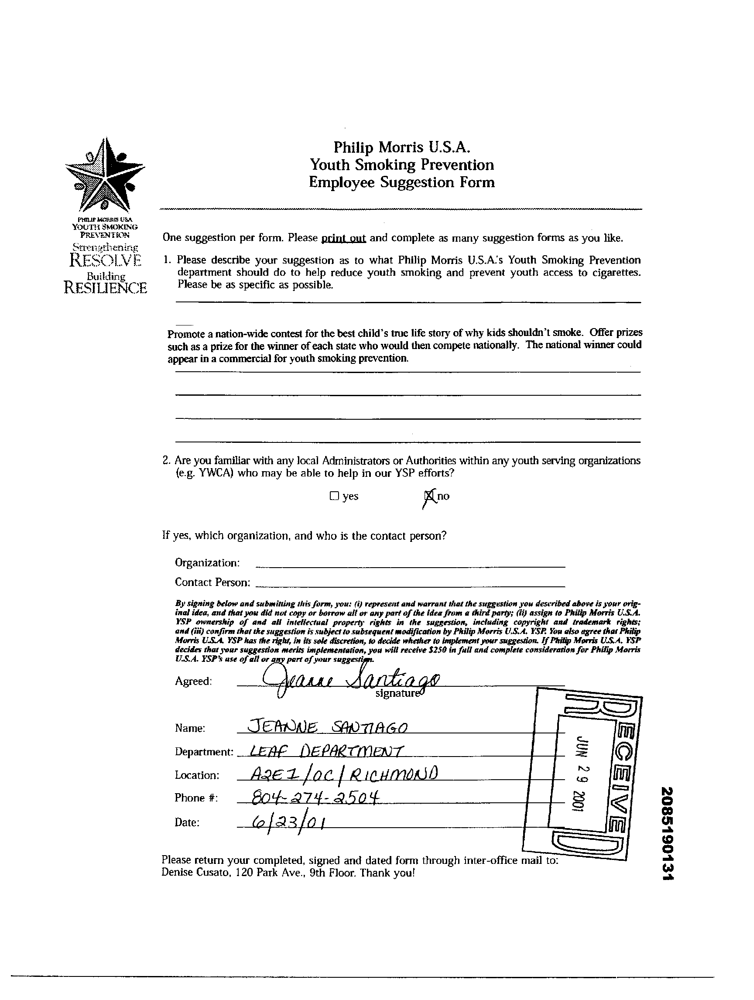 Philip Morris U.S.A.
Youth Smoking Prevention
Employee Suggestion Form
PHILIP MORRIS USA
YOUTH SMOKING
PREVENTION
Strengthening
RESOLVE
Building
RESILIENCE
One suggestion per form. Please print out and complete as many suggestion forms as you like.
1. Please describe your suggestion as to what Philip Morris U.S.A.'s Youth Smoking Prevention
department should do to help reduce youth smoking and prevent youth access to cigarettes.
Please be as specific as possible.
Promote a nation-wide contest for the best child's true life story of why kids shouldn't smoke. Offer prizes
such as a prize for the winner of each state who would then compete nationally. The national winner could
appear in a commercial for youth smoking prevention.
2. Are you familiar with any local Administrators or Authorities within any youth serving organizations
(e.g. YWCA) who may be able to help in our YSP efforts?
☐ yes ☒ no
If yes, which organization, and who is the contact person?
Organization:
Contact Person:
By signing below and submitting this form, you: (i) represent and warrant that the suggestion you described above is your orig-
inal idea, and that you did not copy or borrow all or any part of the idea from a third party; (ii) assign to Philip Morris U.S.A.
YSP ownership of and all intellectual property rights in the suggestion, including copyright and trademark rights;
and (iii) confirm that the suggestion is subject to subsequent modification by Philip Morris U.S.A. YSP. You also agree that Philip
Morris U.S.A. YSP has the right, in its sole discretion, to decide whether to implement your suggestion. If Philip Morris U.S.A. YSP
decides that your suggestion merits implementation, you will receive $250 in full and complete consideration for Philip Morris
U.S.A. YSP's use of all or any part of your suggestion.
Agreed: Jeanne Santiago
signature
Name: JEANNE SANTIAGO
Department: LEAF DEPARTMENT
Location: A2E1/OC/RICHMOND
Phone #: 804-274-2504
Date: 6/23/01
RECEIVED
JUN 29 2001
2085190131
Please return your completed, signed and dated form through inter-office mail to:
Denise Cusato, 120 Park Ave., 9th Floor. Thank you!